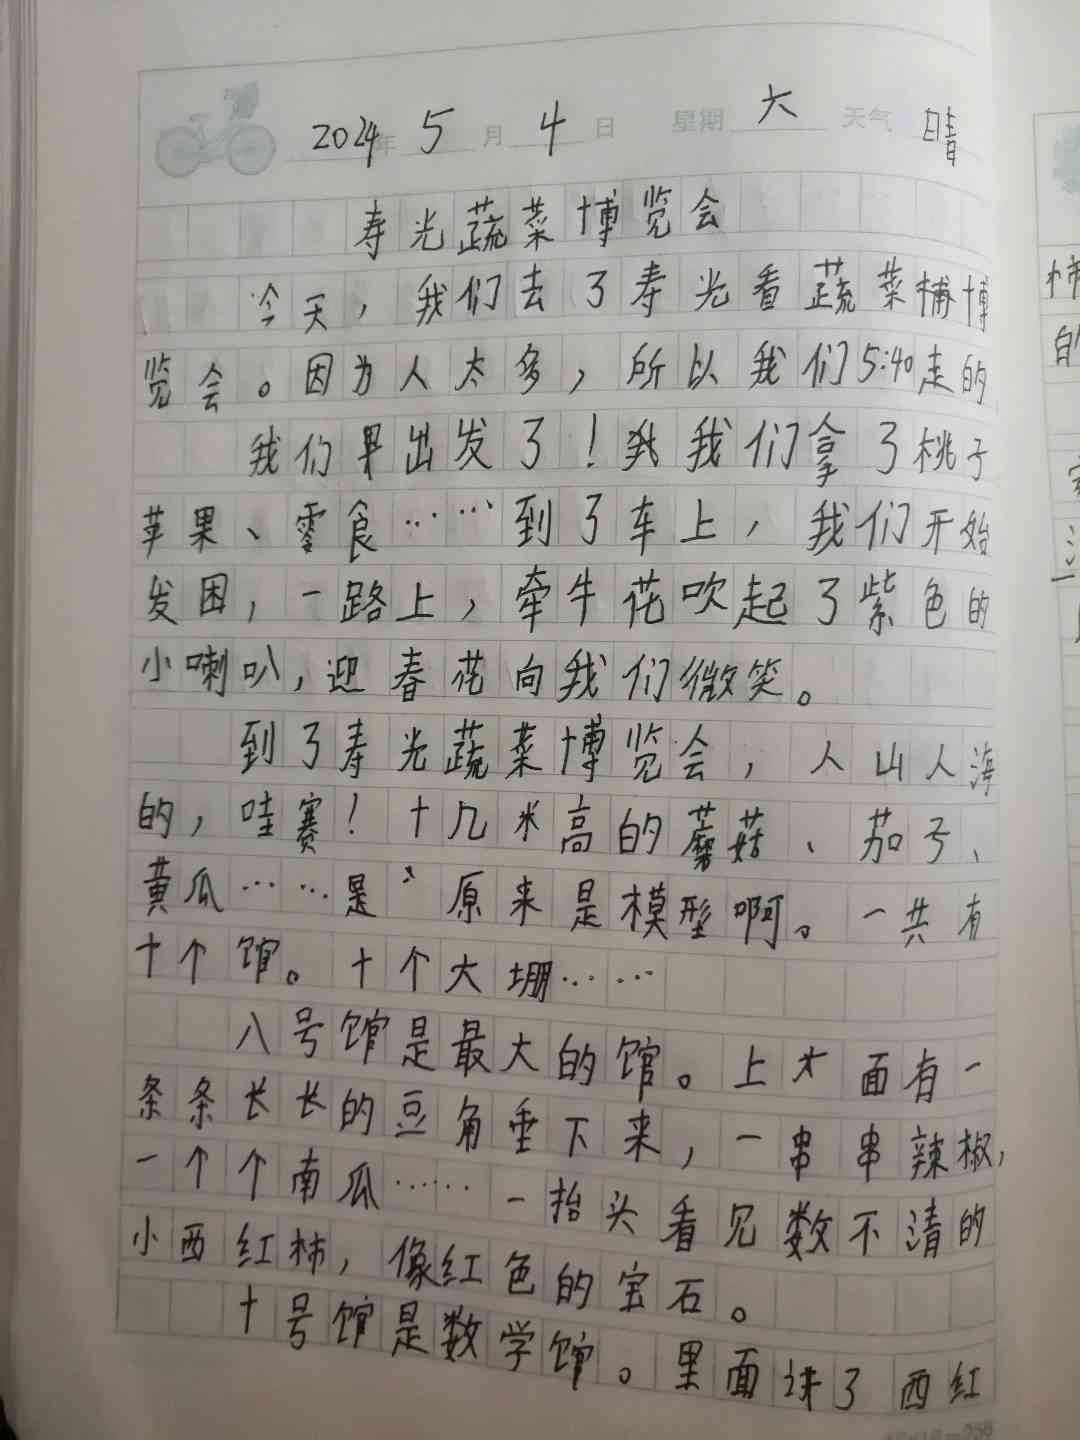 2024年 5月 4日 星期 六 天气 晴
寿光蔬菜博览会
今天，我们去了寿光看蔬菜博
览会。因为人太多，所以我们5:40走的
我们早出发了！我们拿了桃子
苹果、零食……到了车上，我们开始
发困，一路上，牵牛花吹起了紫色的
小喇叭，迎春花向我们微笑。
到了寿光蔬菜博览会，人山人海
的，哇赛！十几米高的蘑菇、茄子、
黄瓜……是原来是模型啊。一共有
十个馆。十个大堋……
八号馆是最大的馆。上面有一
条条长长的豆角垂下来，一串串辣椒，
一个个南瓜……一抬头看见数不清的
小西红柿，像红色的宝石。
十号馆是数学馆。里面讲了西红
柿
的